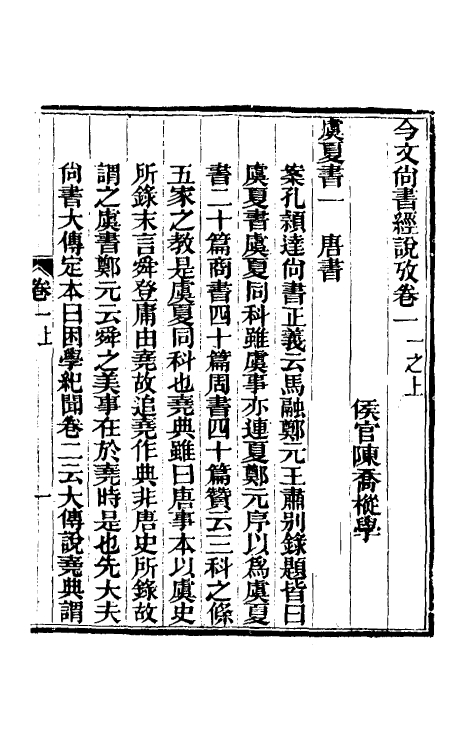 今文尚書經說攷卷一 一之上
侯官陳喬樅學
虞夏書一 唐書
案孔頴達尚書正義云馬融鄭元王肅别錄題皆曰
虞夏書虞夏同科雖虞事亦連夏鄭元序以爲虞夏
書二十篇商書四十篇周書四十篇贊云三科之條
五家之教是虞夏同科也堯典雖曰唐事本以虞史
所錄末言舜登庸由堯故追堯作典非唐史所錄故
謂之虞書鄭元云舜之美事在於堯時是也先大夫
尙書大傳定本曰困學紀聞卷二云大傳說堯典謂
卷一上
一